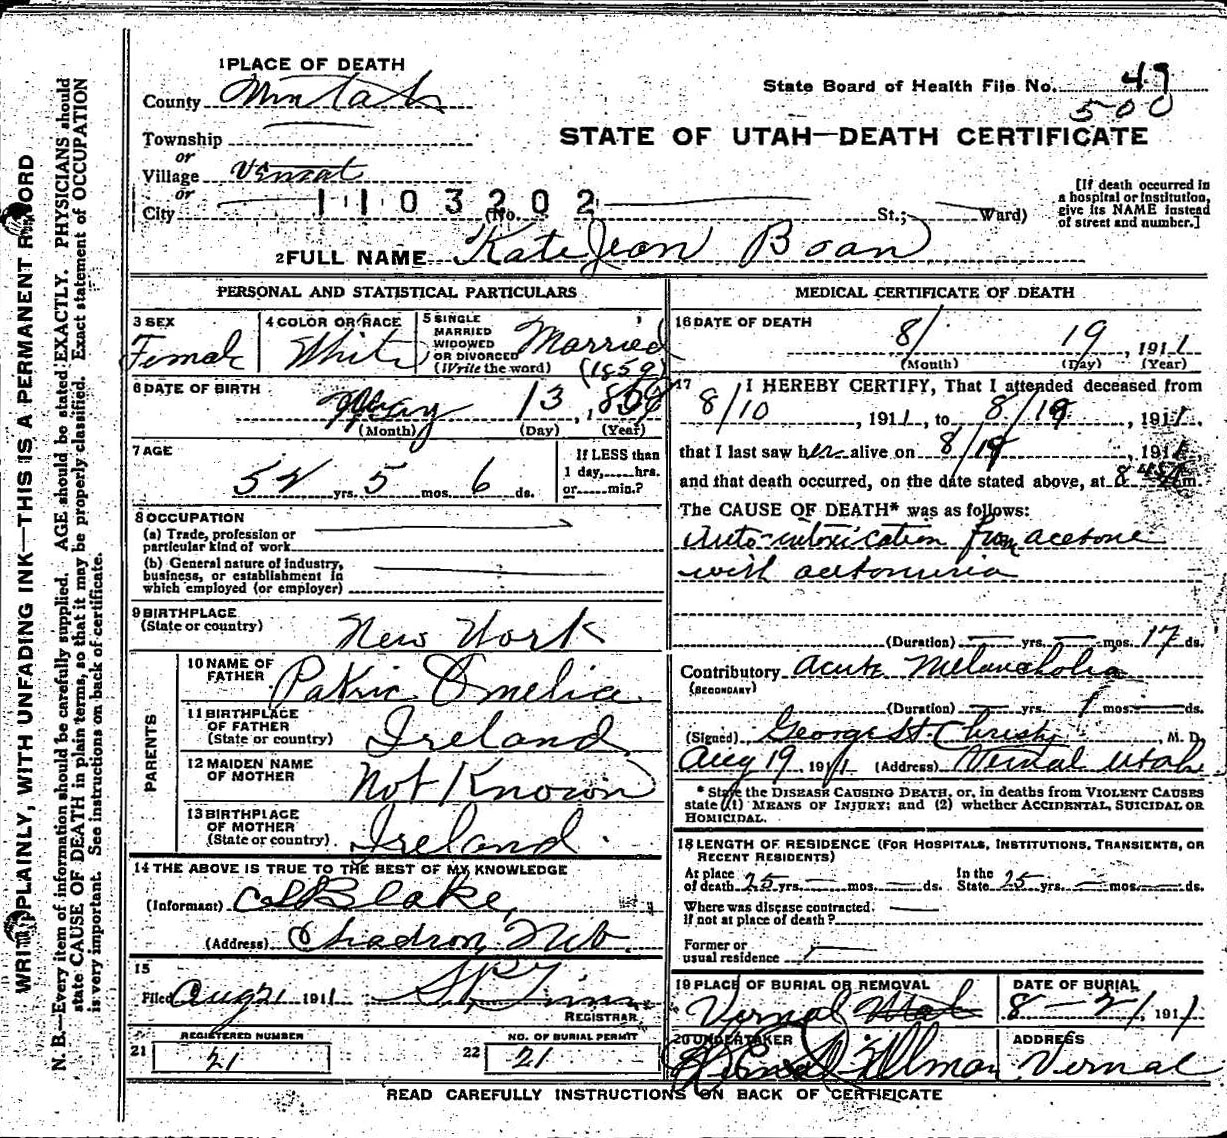 WRITE PLAINLY, WITH UNFADING INK—THIS IS A PERMANENT RECORD
N. B.—Every item of information should be carefully supplied. AGE should be stated EXACTLY. PHYSICIANS should
state CAUSE OF DEATH in plain terms, so that it may be properly classified. Exact statement of OCCUPATION
is very important. See instructions on back of certificate.
1 PLACE OF DEATH
County
State Board of Health File No. 49
500
Township
STATE OF UTAH—DEATH CERTIFICATE
or
Village
or
City 1103202 (No. St.; Ward)
[If death occurred in
a hospital or institution,
give its NAME instead
of street and number.]
2 FULL NAME Kate Jean Boan
PERSONAL AND STATISTICAL PARTICULARS
3 SEX Female
4 COLOR OR RACE White
5 SINGLE
MARRIED
WIDOWED
OR DIVORCED
(Write the word) Married
(1859)
6 DATE OF BIRTH 13, 1859
(Month) (Day) (Year)
7 AGE
52 yrs. 5 mos. 6 ds.
If LESS than
1 day, hrs.
or min.?
8 OCCUPATION
(a) Trade, profession or
particular kind of work
(b) General nature of industry,
business, or establishment in
which employed (or employer)
9 BIRTHPLACE
(State or country) New York
PARENTS
10 NAME OF
FATHER Patric Omelia
11 BIRTHPLACE
OF FATHER
(State or country) Ireland
12 MAIDEN NAME
OF MOTHER Not Known
13 BIRTHPLACE
OF MOTHER
(State or country) Ireland
14 THE ABOVE IS TRUE TO THE BEST OF MY KNOWLEDGE
(Informant) Blake
(Address) Chadron, Neb.
15
Filed Aug 21 1911
REGISTRAR
REGISTERED NUMBER
21 21
NO. OF BURIAL PERMIT
22 21
MEDICAL CERTIFICATE OF DEATH
16 DATE OF DEATH
8/ 19, 1911
(Month) (Day) (Year)
17 I HEREBY CERTIFY, That I attended deceased from
8/10, 1911, to 8/19, 1911,
that I last saw her alive on 8/19, 1911,
and that death occurred, on the date stated above, at 8 m.
The CAUSE OF DEATH* was as follows:
Auto-intoxication from acetone
with acetonuria
(Duration) — yrs. — mos. 17 ds.
Contributory Acute Melancholia
(SECONDARY)
(Duration) — yrs. 1 mos. — ds.
(Signed) George H. Christie, M. D.
Aug 19, 1911 (Address) Vernal Utah
* State the DISEASE CAUSING DEATH, or, in deaths from VIOLENT CAUSES
state (1) MEANS OF INJURY; and (2) whether ACCIDENTAL, SUICIDAL OR
HOMICIDAL.
18 LENGTH OF RESIDENCE (FOR HOSPITALS, INSTITUTIONS, TRANSIENTS, OR
RECENT RESIDENTS)
At place
of death 25 yrs. — mos. — ds.
In the
State 25 yrs. — mos. — ds.
Where was disease contracted.
If not at place of death?
Former or
usual residence
19 PLACE OF BURIAL OR REMOVAL
Vernal Utah
DATE OF BURIAL
8—21, 1911
20 UNDERTAKER
ADDRESS
Vernal
READ CAREFULLY INSTRUCTIONS ON BACK OF CERTIFICATE